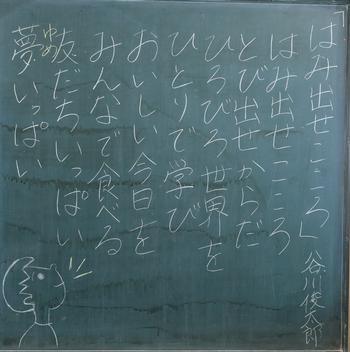 「はみ出せこころ」 谷川俊太郎
はみ出せこころ
とび出せからだ
ひろびろ世界を
ひとりで学び
おいしい今日を
みんなで食べる
友だちいっぱい
ゆめ
夢いっぱい